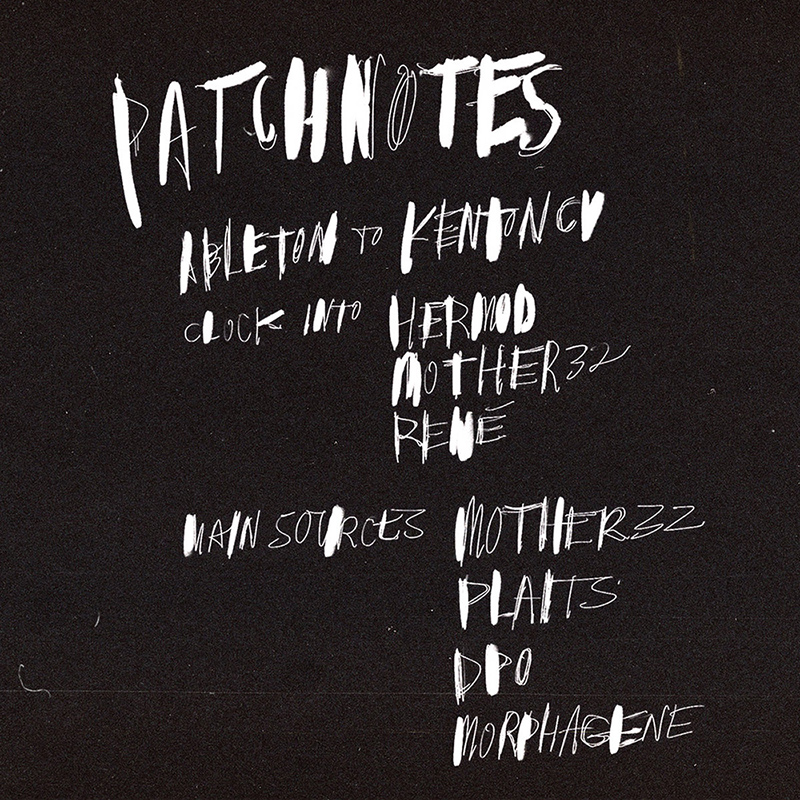 PATCHNOTES
ABLETON TO KENTON CV
CLOCK INTO HERMOD
MOTHER32
RENÉ
MAIN SOURCES MOTHER32
PLAITS
DPO
MORPHAGENE